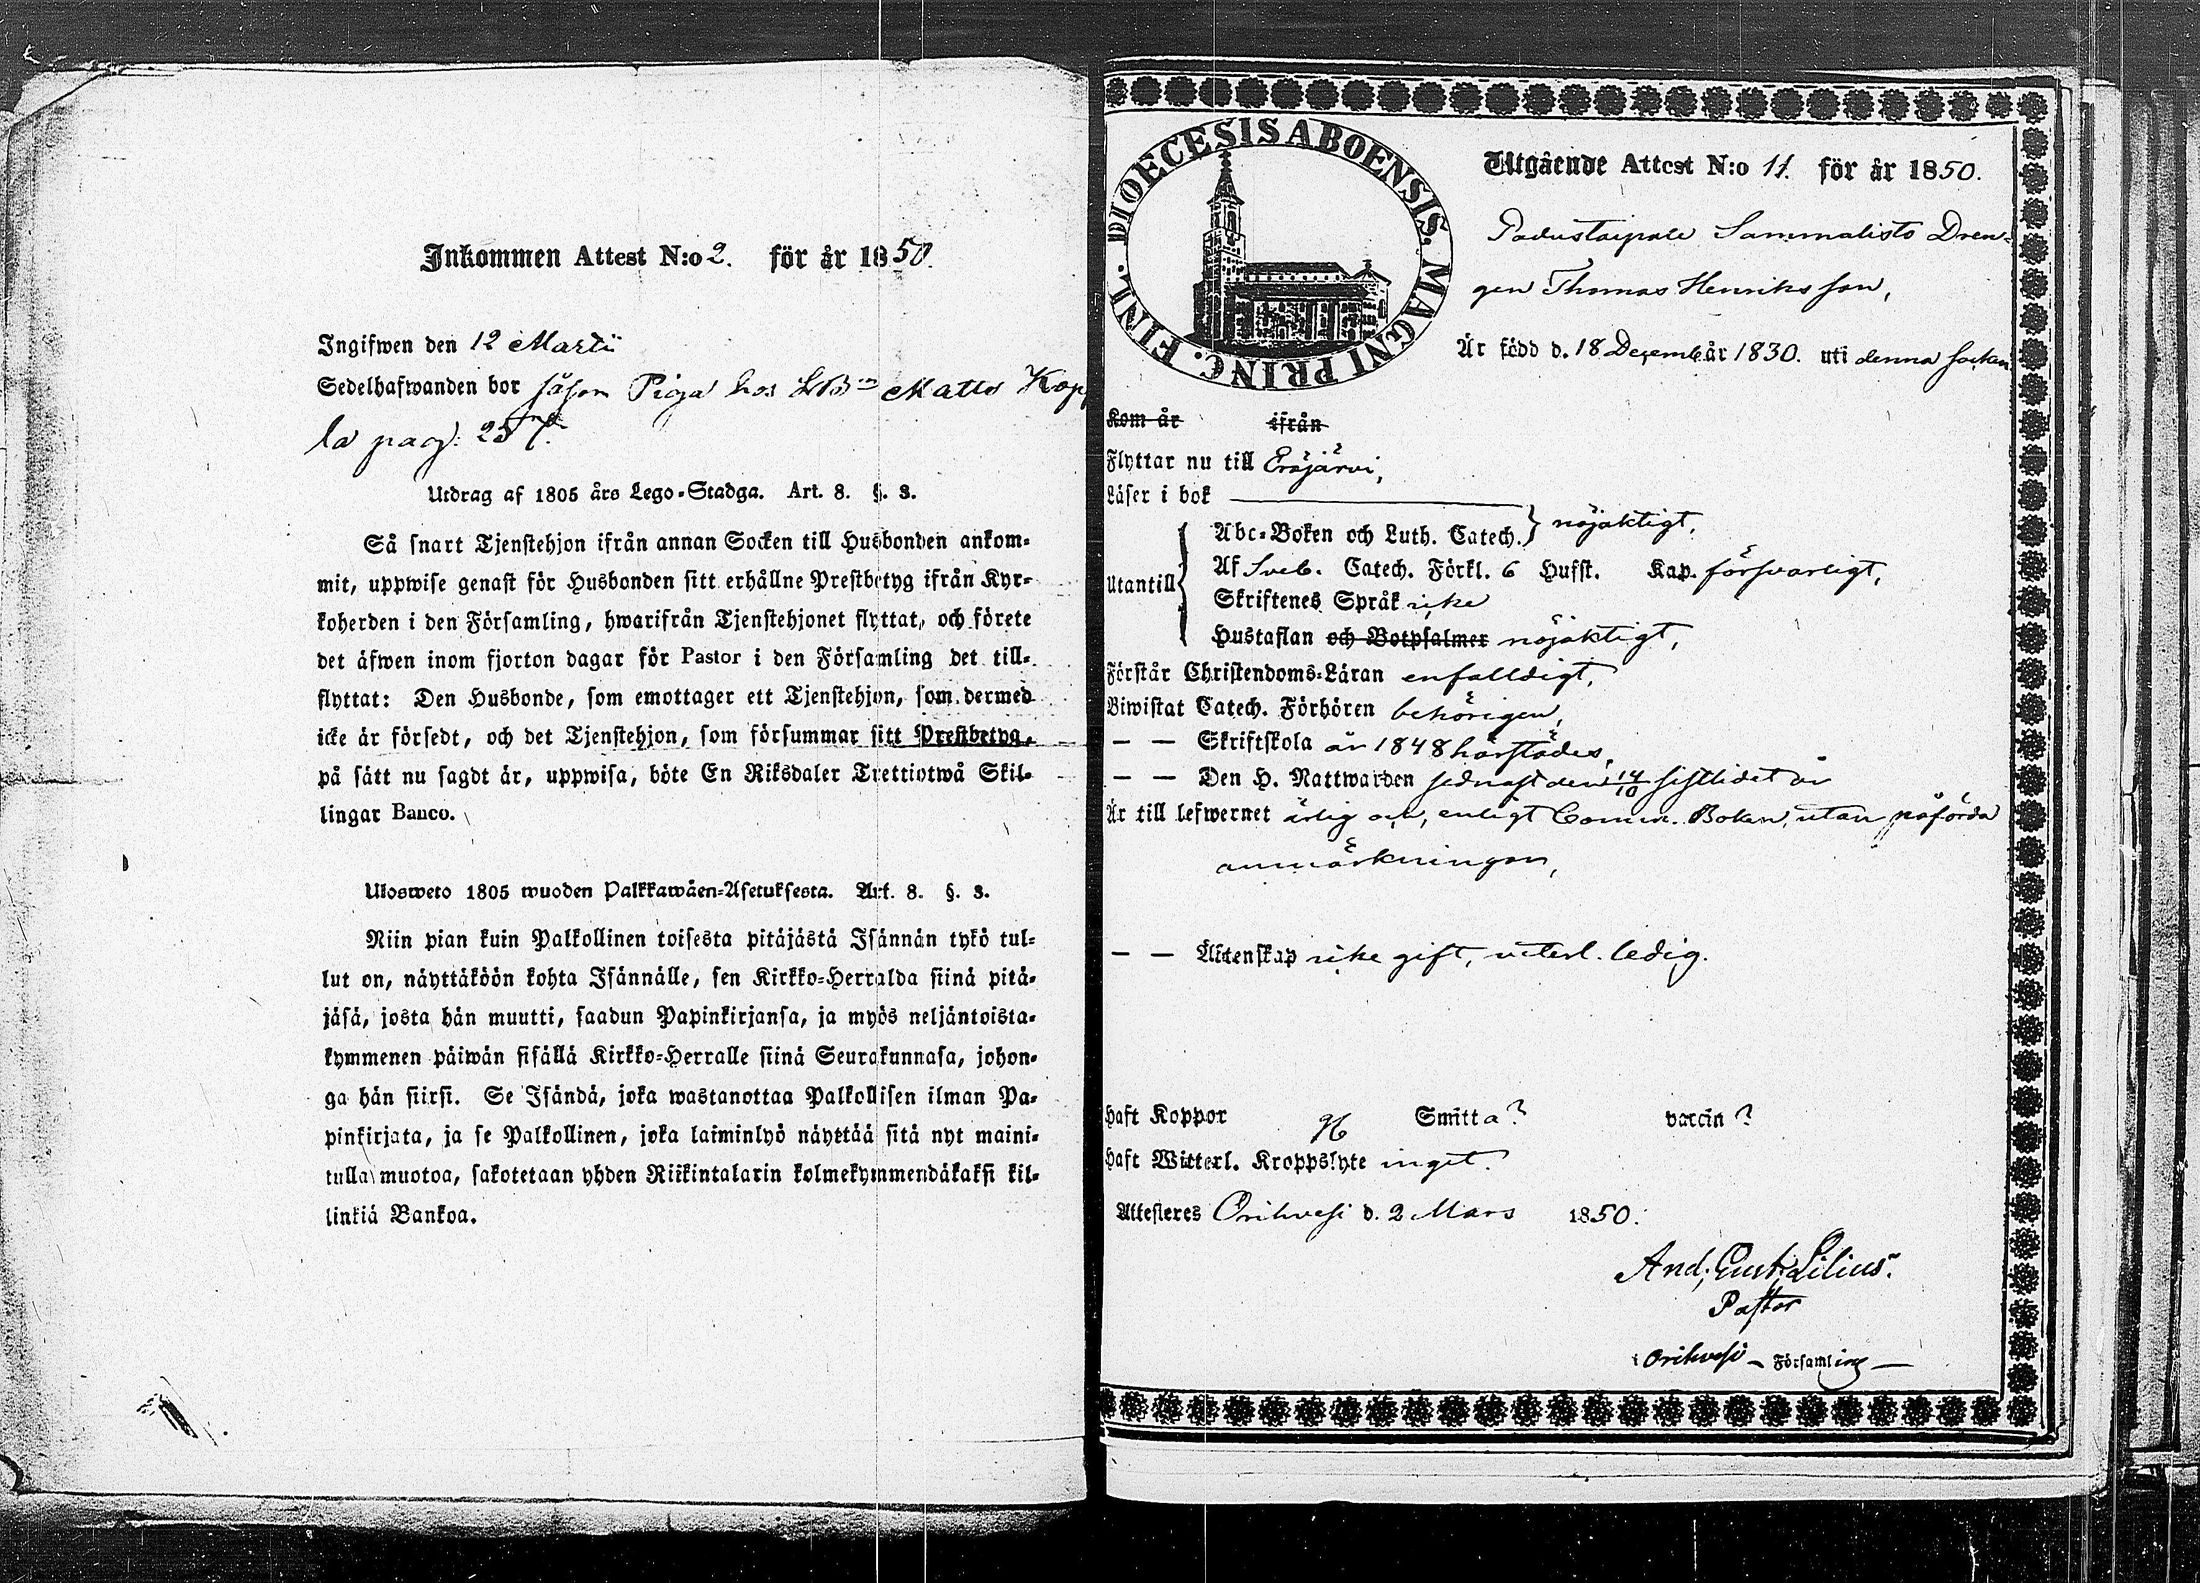 Inkommen Attest N:o 2. för år 1850.
Ingifwen den 12 Martii
Sedelhafwanden bor såsom Piga hos Matts Kop
la pag. 257.
Utdrag af 1805 års Lego-Stadga. Art. 8. §. 3.
Så snart Tjenstehjon ifrån annan Socken till Husbonden ankom-
mit, uppwise genast för Husbonden sitt erhållne Prestbetyg ifrån Kyr-
koherden i den Församling, hwarifrån Tjenstehjonet flyttat, och förete
det äfwen inom fjorton dagar för Pastor i den Församling det till-
flyttat: Den Husbonde, som emottager ett Tjenstehjon, som dermed
icke är försedt, och det Tjenstehjon, som försummar sitt Prestbetyg,
på sätt nu sagdt är, uppwisa, böte En Riksdaler Trettiotwå Skil-
lingar Banco.
Ulosweto 1805 wuoden Palkkawäen-Asetuksesta. Art. 8. §. 3.
Niin pian kuin Palkollinen toisesta pitäjästä Isännän tykö tul-
lut on, näyttäköön kohta Isännälle, sen Kirkko-Herralda siinä pitä-
jäsä, josta hän muutti, saadun Papinkirjansa, ja myös neljäntoista-
kymmenen päiwän sisällä Kirkko-Herralle siinä Seurakunnasa, johon-
ga hän siirsi. Se Isändä, joka wastanottaa Palkollisen ilman Pa-
pinkirjata, ja se Palkollinen, joka laiminlyö näyttää sitä nyt maini-
tulla muotoa, sakotetaan yhden Riikintalarin kolmekymmendäkaksi kil-
linkiä Bankoa.
DIOECESIS ABOENSIS. MAGNI PRINC. FINL.
Utgående Attest N:o 11. för år 1850.
Padustaipale Sammalisto Dren-
gen Thomas Henriksson,
Är född d. 18 Decemb. år 1830. uti denna socken
Kom år ifrån
Flyttar nu till Eräjärvi,
Läser i bok
Abc-Boken och Luth. Catech. nöjaktigt,
Utantill
Af Sveb. Catech. Förkl. 6 Hufst. Kap. försvarligt,
Skriftenes Språk icke
Hustaflan och Botpsalmer nöjaktigt,
Förstår Christendoms-Läran enfalldigt,
Biwistat Catech. Förhören behörigen,
— — Skriftskola år 1848 härstädes,
— — Den H. Nattwarden sednast den 14/10 sistlidet år
Är till lefwernet ärlig och, enligt Comm. Boken, utan påförda
anmärkningar,
— — Äktenskap icke gift, veterl. ledig.
Haft Koppor Smitta? vaccin?
Haft Witterl. Kroppslyte inget.
Attesteres Orihvesi d. 2 Mars 1850.
And. Gust. Lilius.
Pastor
i Orihvesi Församling